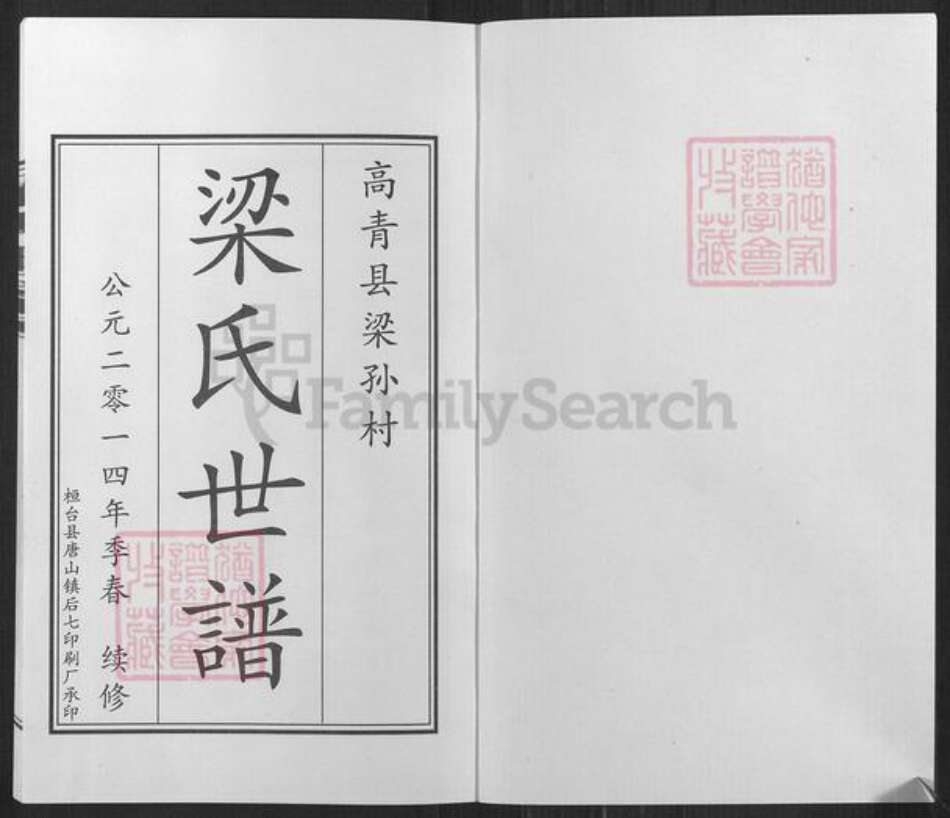 猶他家
譜學會
收藏
高青县梁孙村
梁氏世譜
公元二零一四年季春 续修
桓台县唐山镇后七印刷厂承印
猶他家
譜學會
收藏
FamilySearch